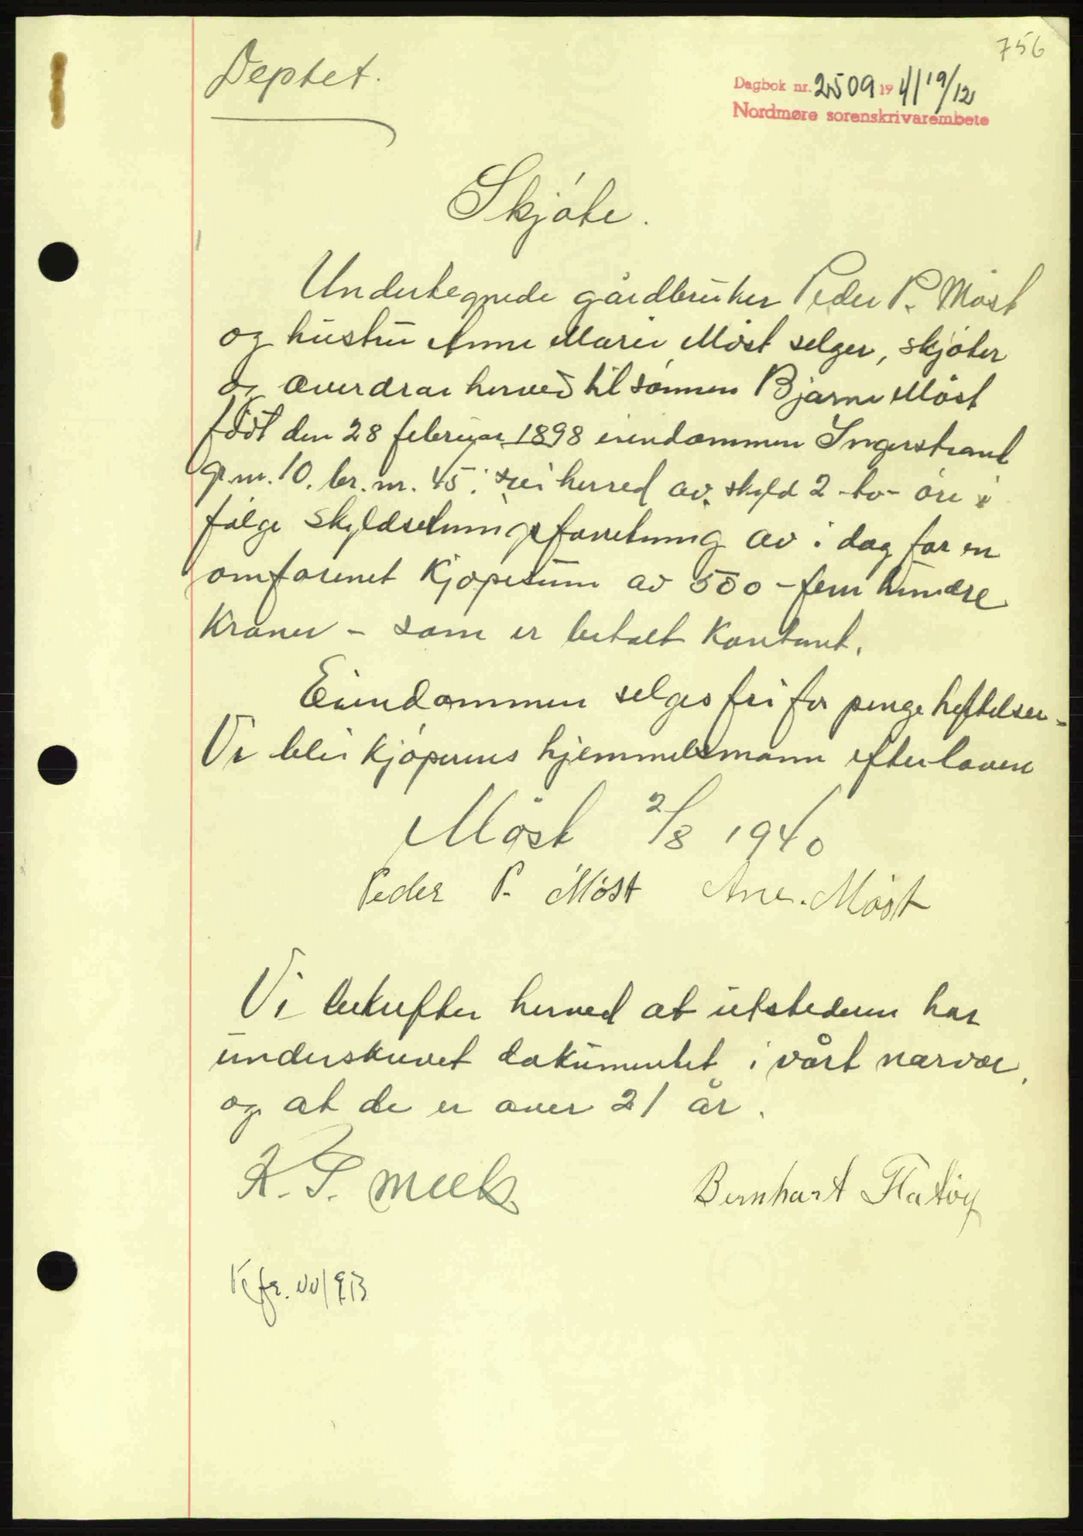 756
Deptet.
Dagbok nr. 2509 1941 19/12
Nordmøre sorenskrivarembete
Skjöte.
Undertegnede gårdbruker Peder P. Möst
og hustru Anne Marie Möst selger, skjöter
og överdrar herved til sönnen Bjarne Möst
född den 28 februar 1898 eiendommen Ingerstrand
gr. nr. 10. br. nr. 45. i herred av skyld 2 -to- öre i
fölge skyldsetningsforretning av i dag for en
omforenet kjöpesum av 500 - fem hundre
kroner - som er betalt kontant.
Eiendommen selges fri for penge heftelser -
Vi blir kjöperens hjemmelsmann efter loven
Möst 2/8 1940
Peder P. Möst Ane. Möst
Vi bekrefter herved at utstederen har
underskrevet dokumentet i vårt nærvær,
og at de er over 21 år.
K. P. Meek
Bernhart Flatöy
Kfr.